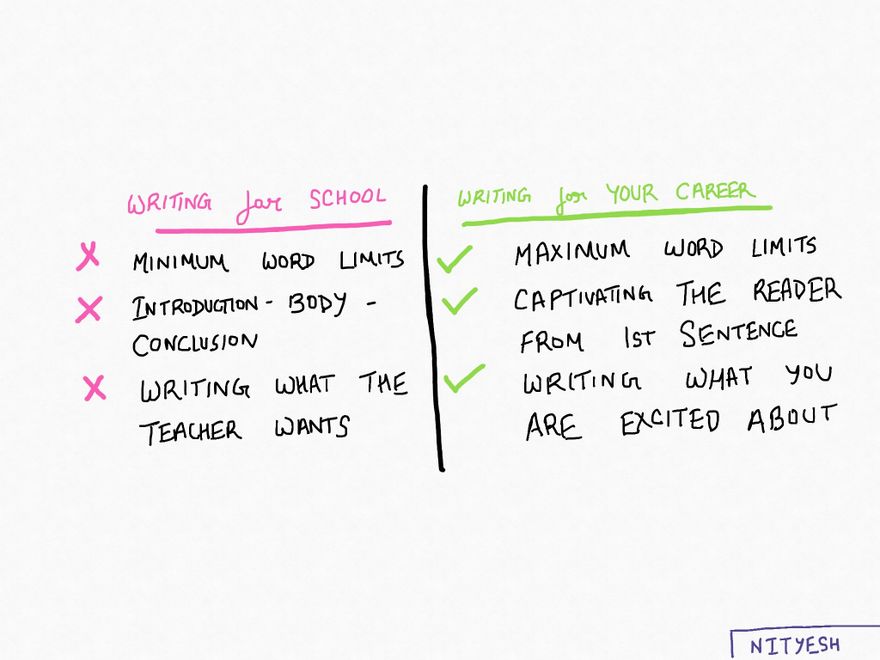 WRITING for SCHOOL
X MINIMUM WORD LIMITS
X INTRODUCTION - BODY -
CONCLUSION
X WRITING WHAT THE
TEACHER WANTS
WRITING for YOUR CAREER
✓ MAXIMUM WORD LIMITS
✓ CAPTIVATING THE READER
FROM 1ST SENTENCE
✓ WRITING WHAT YOU
ARE EXCITED ABOUT
NITYESH